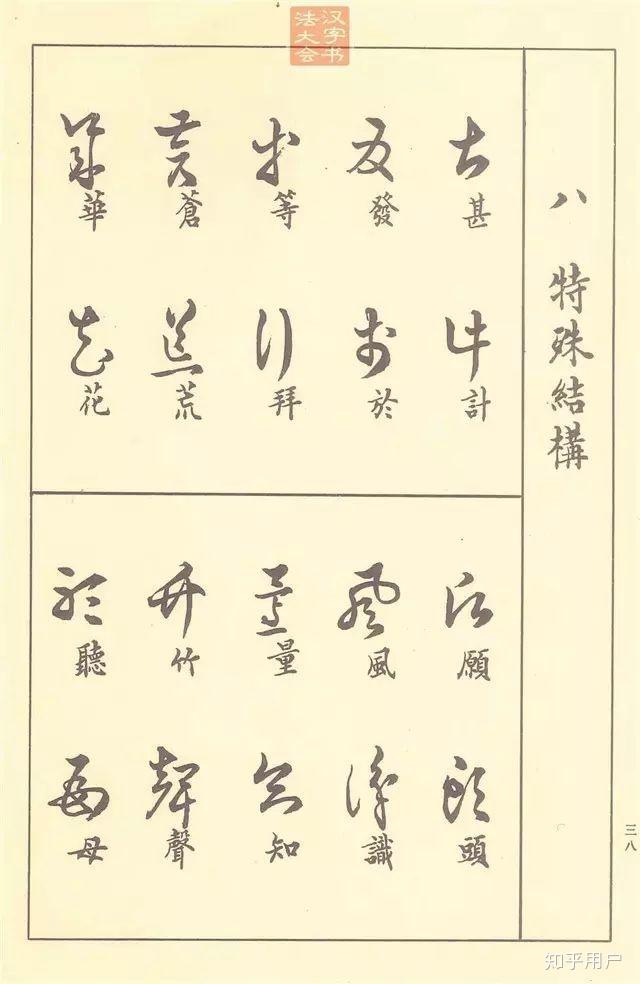 汉字书法大会
八 特殊結構
甚
計
發
於
等
拜
蒼
荒
華
花
願
頭
風
識
量
知
竹
聲
聽
母
三八
知乎用户